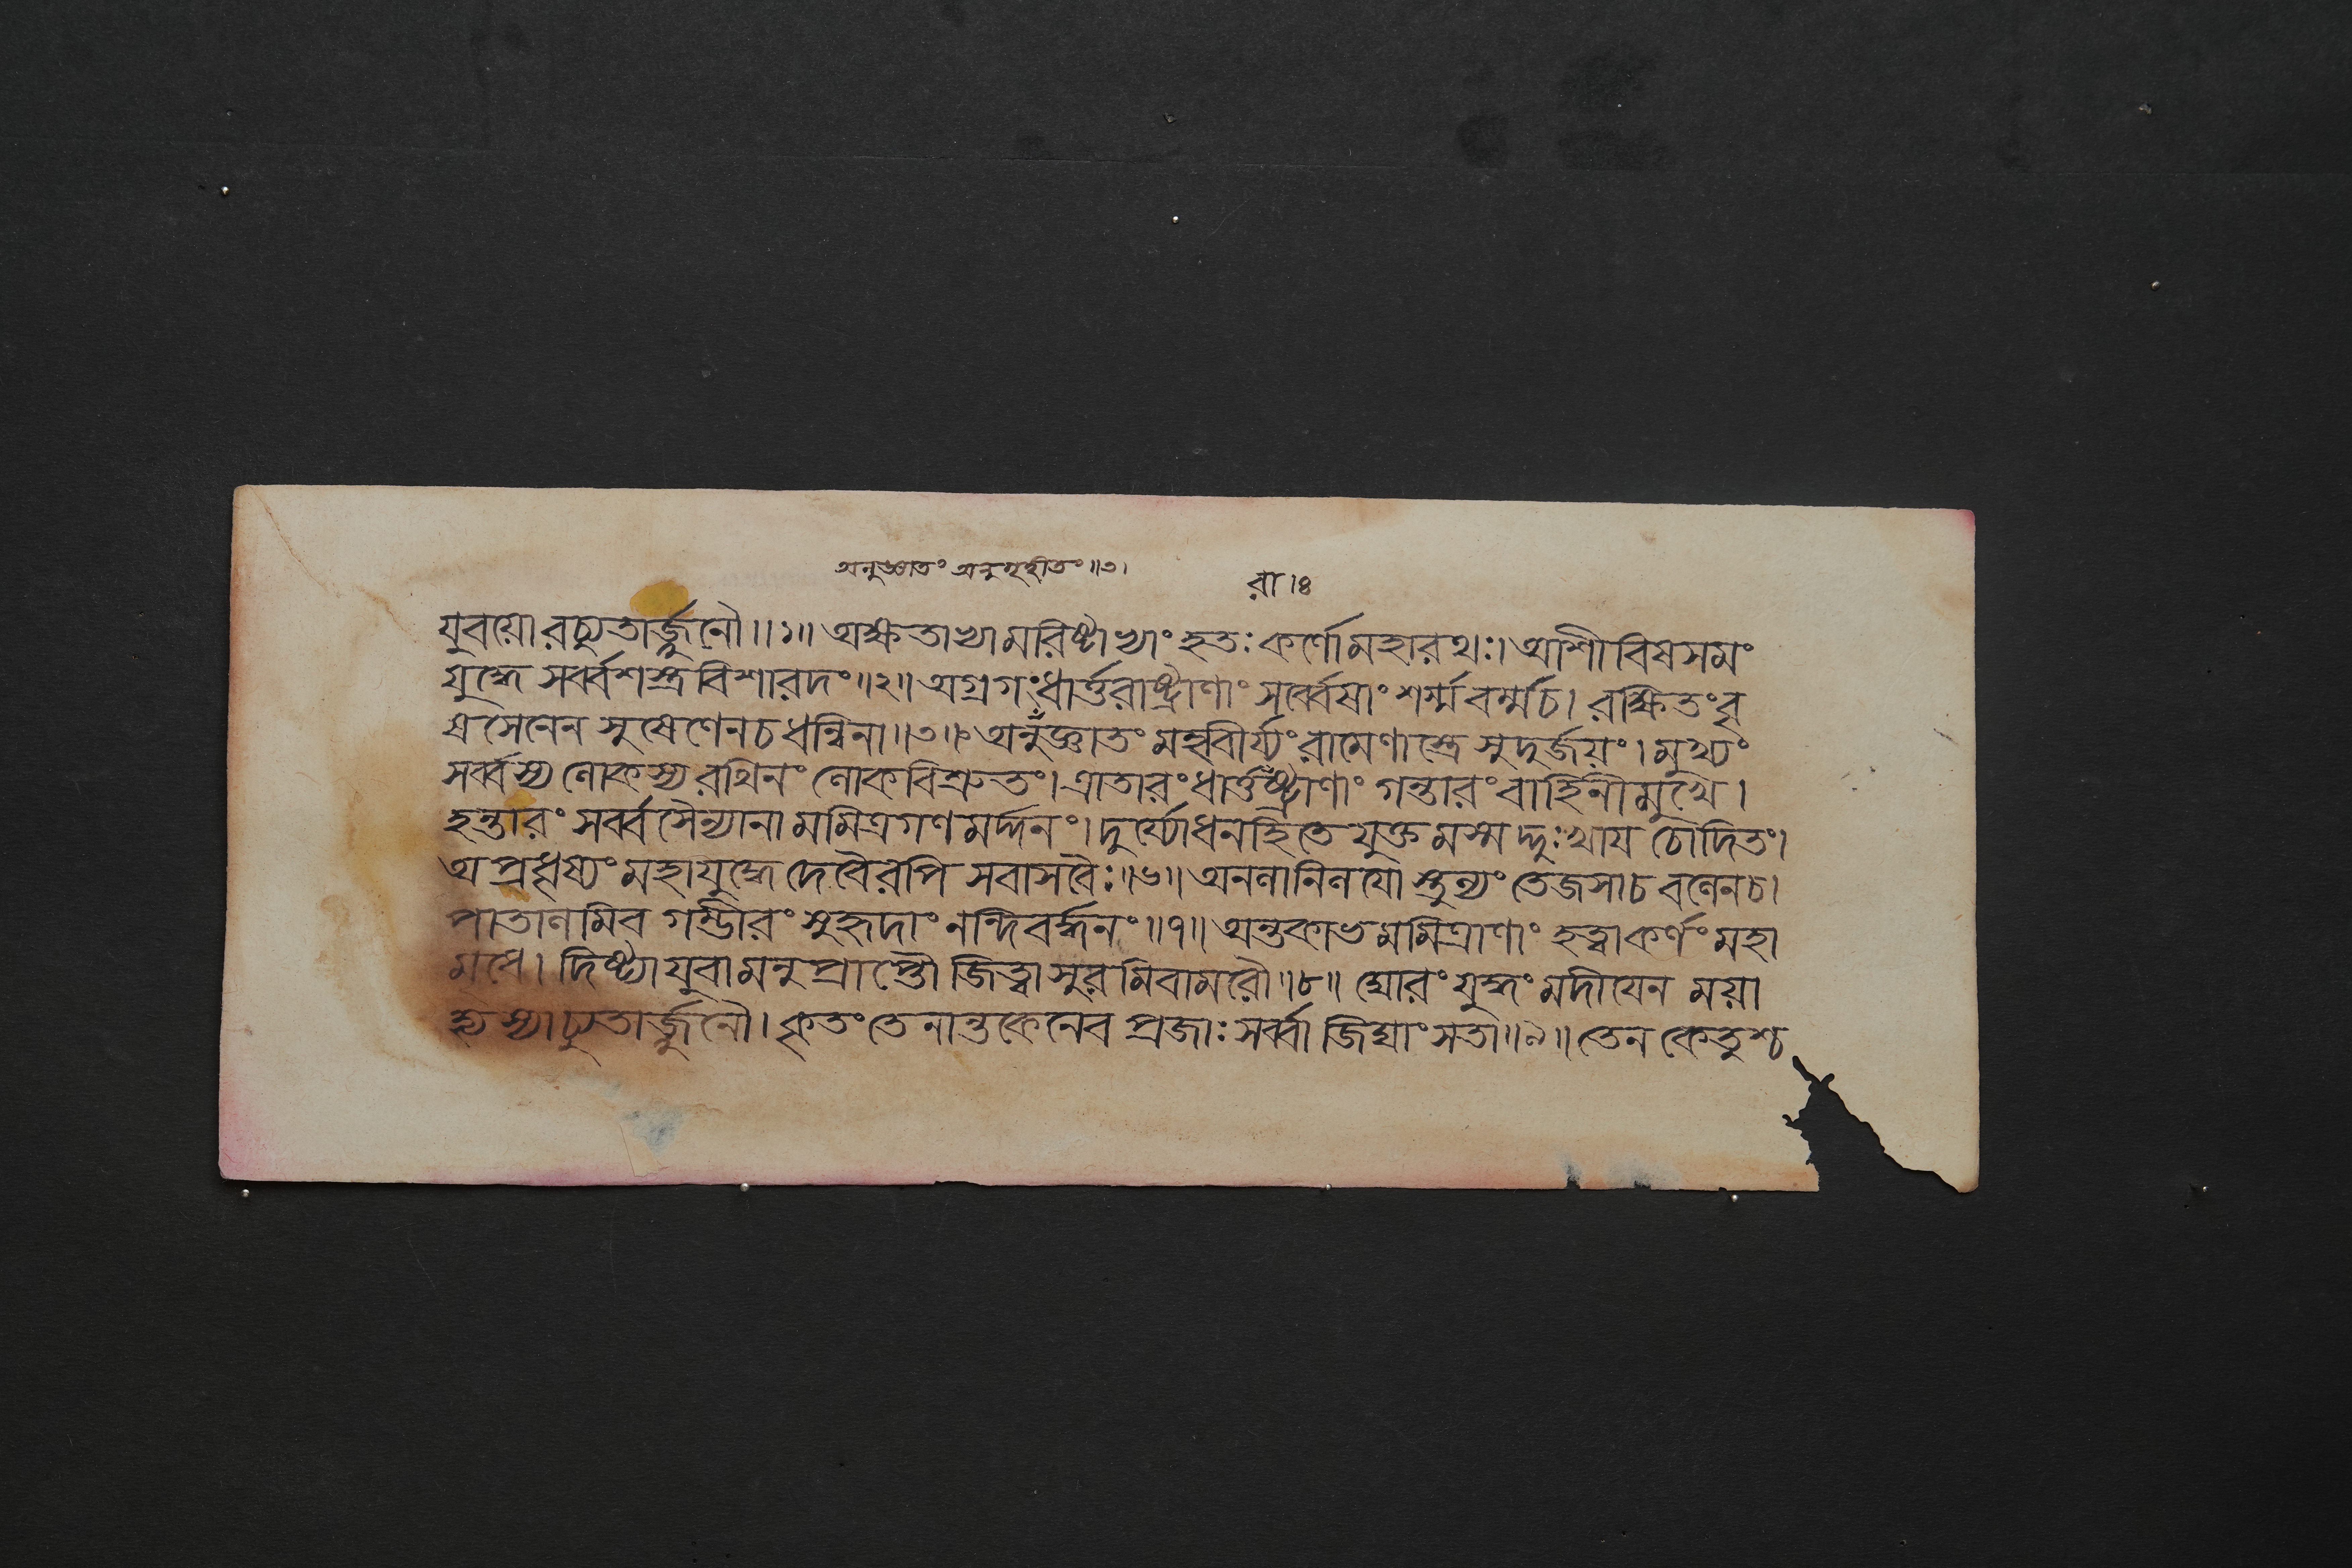 অনুজ্ঞাতং অনুগৃহীতং॥৩।
রা।৪
যুবয়োরচ্যুতার্জ্জুনৌ॥১॥ অক্ষতাভ্যামরিষ্টাভ্যাং হতঃ কর্ণোমহারথঃ। আশীবিষসমং
যুদ্ধে সর্ব্বশস্ত্রবিশারদং॥২॥ অগ্রগংধার্ত্তরাষ্ট্রাণাং সর্ব্বেষাং শর্ম্মবর্ম্মচ। রক্ষিতংবৃ
ষসেনেন সুষেণেনচধন্বিনা॥৩॥ অনুজ্ঞাতং মহাবীর্য্যংরামেণাস্ত্রে সুদুর্জয়ং। মুখ্যং
সর্ব্বস্য লোকস্য রথিনং লোকবিশ্রুতং। ত্রাতারংধার্ত্তরাষ্ট্রাণাং গন্তারং বাহিনীমুখে।
হন্তারং সর্ব্বসৈন্যানামমিত্রগণমর্দ্দনং। দুর্য্যোধনহিতে যুক্তমস্মদ্দুঃখায চোদিতং।
অপ্রধৃষ্যং মহাযুদ্ধে দেবৈরপি সবাসবৈঃ॥৬॥ অনলানিলযোস্তুল্যং তেজসাচ বলেনচ।
পাতালমিব গম্ভীরং সুহৃদাং নন্দিবর্দ্ধনং॥৭॥ অন্তকাভমমিত্রাণাং হত্বাকর্ণং মহা
মৃধে। দিষ্ট্যা যুবামনুপ্রাপ্তৌ জিত্বাসুরমিবামরৌ॥৮॥ ঘোরং যুদ্ধং মদীযেন ময়া
হ্যদ্যাচ্যুতার্জ্জুনৌ। কৃতং তেনান্তকেনেব প্রজাঃ সর্ব্বা জিঘাংসতা॥৯॥ তেন কেতুশ্চ